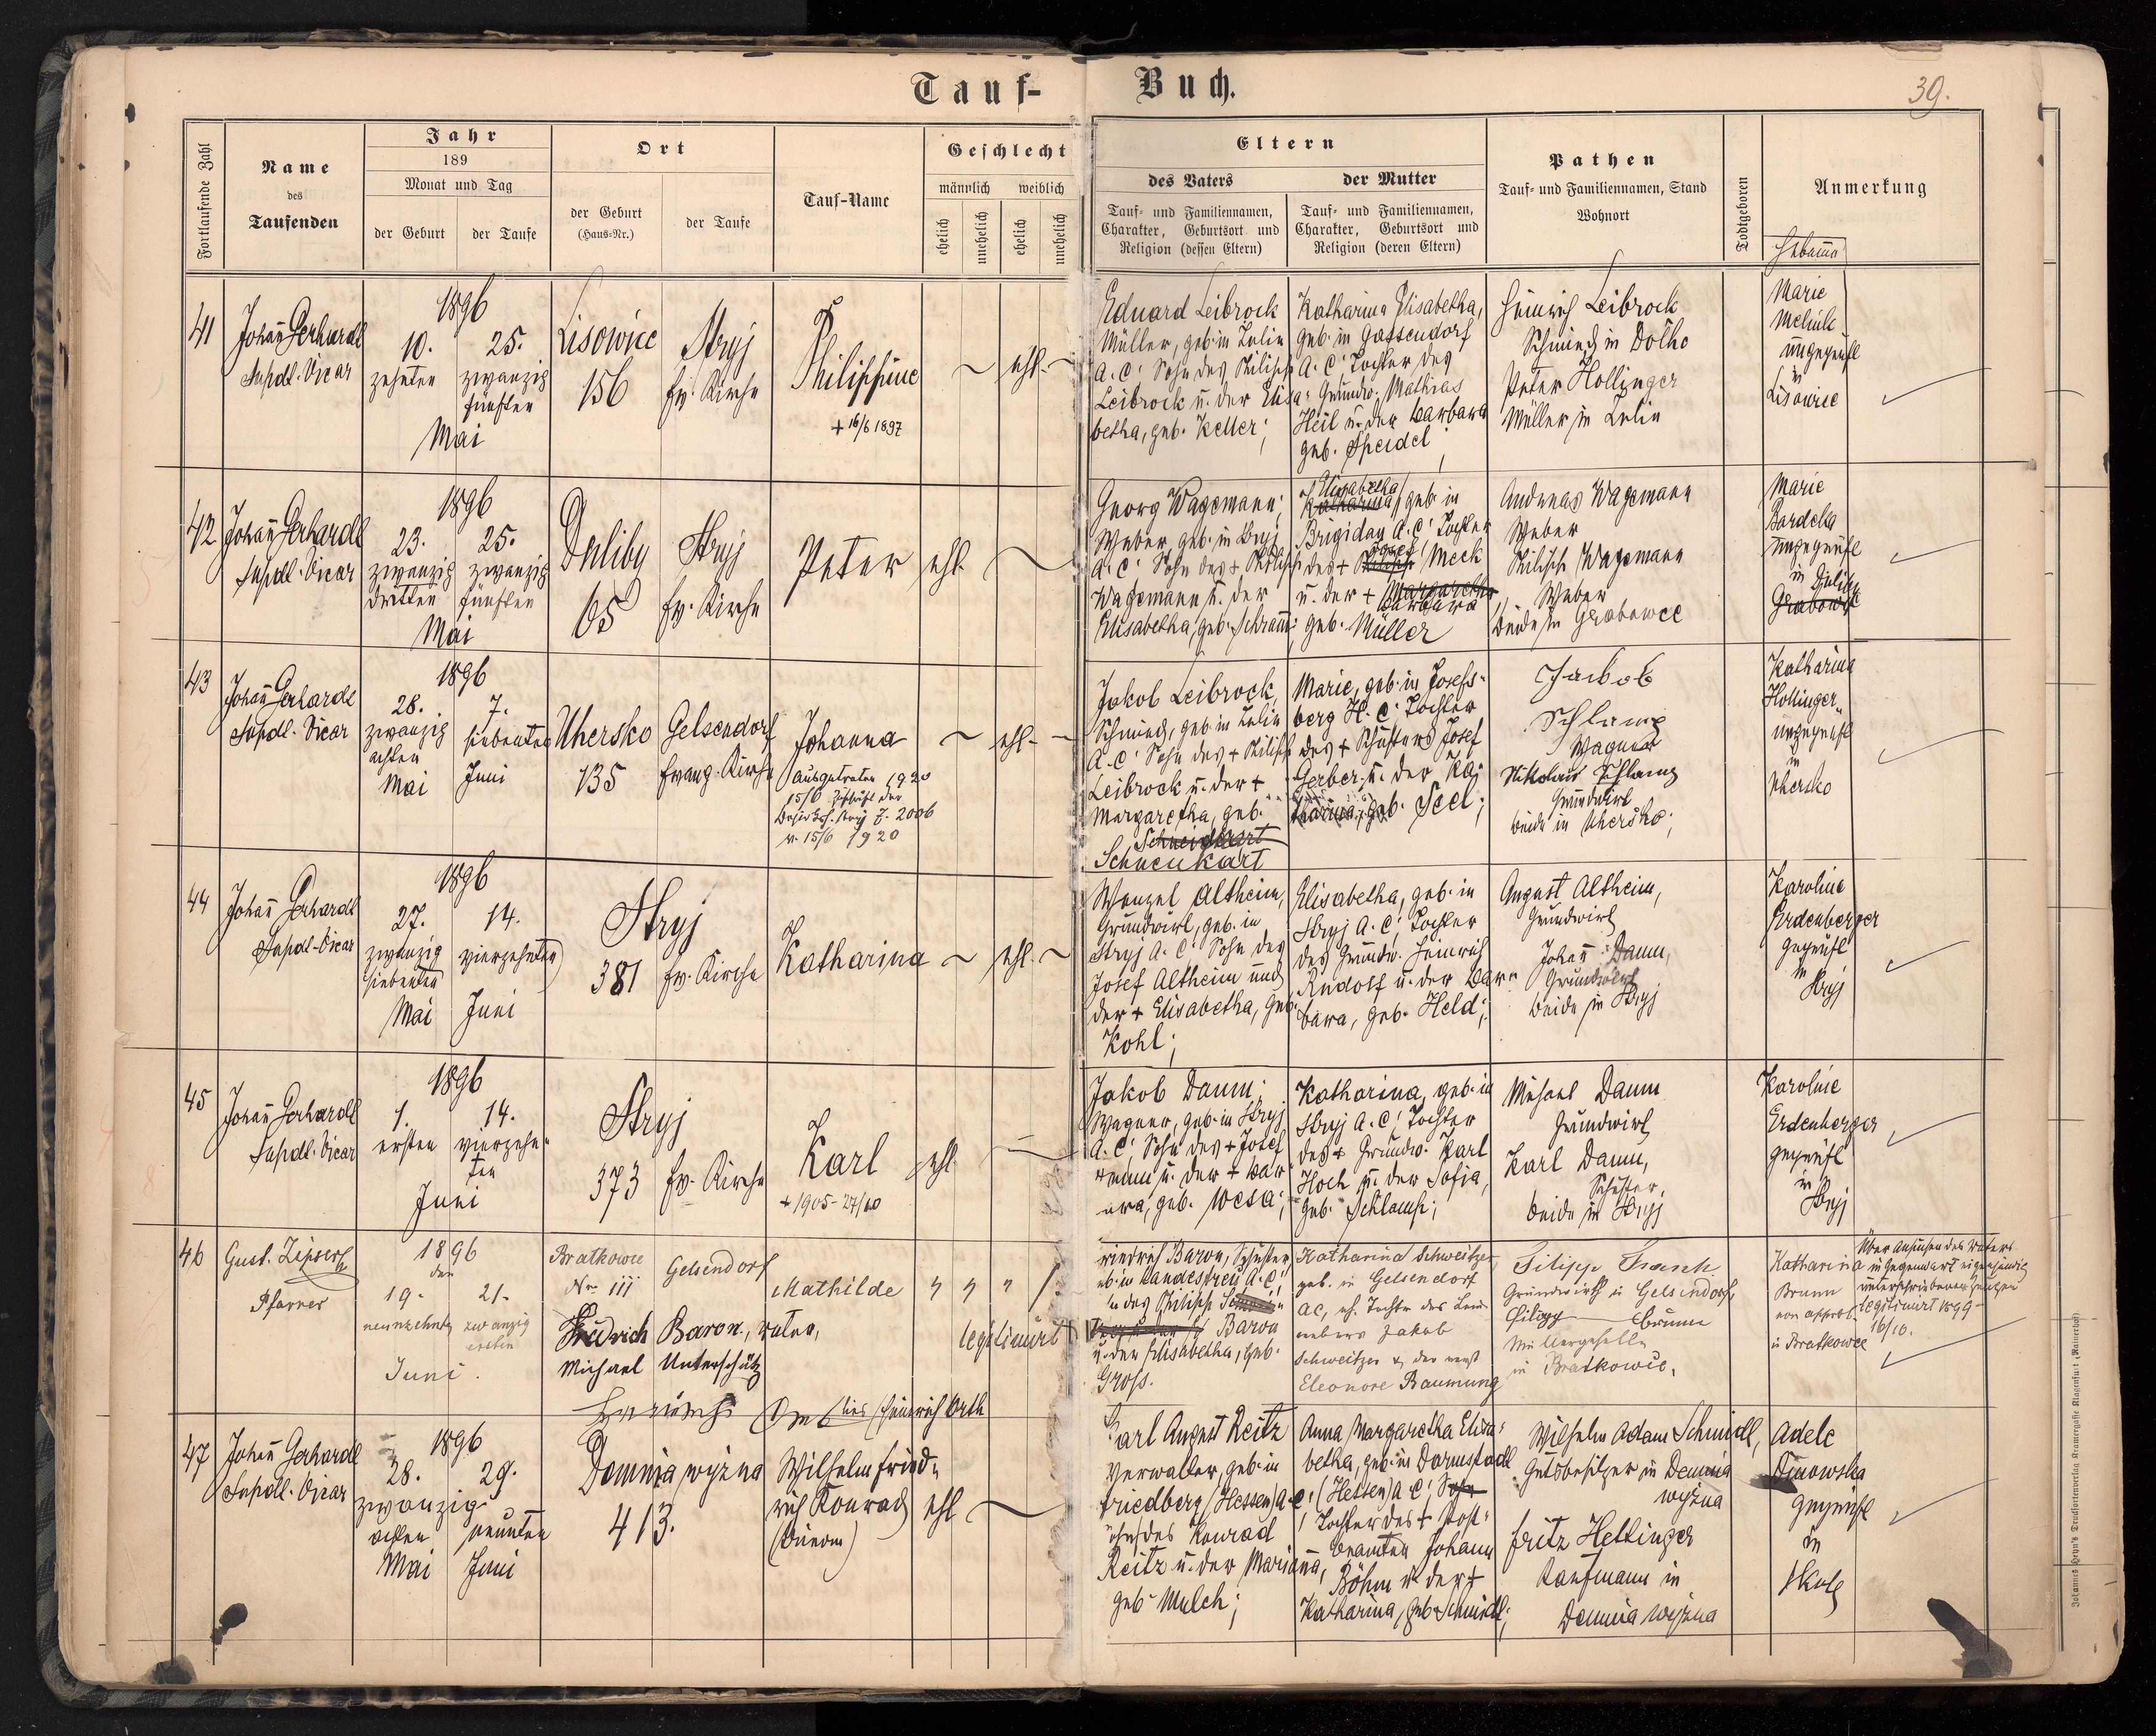 Tauf-Buch.
39.
Fortlaufende Zahl
Name
des
Taufenden
Jahr
189
Monat und Tag
der Geburt
der Taufe
Ort
der Geburt
(Haus-Nr.)
der Taufe
Tauf-Name
Geschlecht
männlich weiblich
ehelich
unehelich
ehelich
unehelich
Eltern
des Vaters
der Mutter
Tauf- und Familiennamen,
Charakter, Geburtsort und
Religion (dessen Eltern)
Tauf- und Familiennamen,
Charakter, Geburtsort und
Religion (deren Eltern)
Pathen
Tauf- und Familiennamen, Stand
Wohnort
Todtgeboren
Anmerkung
Hebamme
41
Johann Gerhardt
Supdt. Vicar
1896
10.
zehnten
25.
zwanzig
fünften
Mai
Lisowice
156
Stryj
ev. Kirche
Philippine
+ 16/6 1897
ehl.
Eduard Leibrock
Müller, geb. in Lelin
A. C. Sohn des Philipp
Leibrock u. der Elisa-
betha, geb. Keller;
Katharina Elisabetha,
geb. in Gassendorf
A. C. Tochter des
Grundw. Mathias
Heil u. der Barbara
geb. Speidel;
Heinrich Leibrock
Schmied in Dolho
Peter Hollinger
Müller in Lelin
Marie
Melnik
ungeprüft
in
Lisowice
42
Johann Gerhardt
Supdt. Vicar
1896
23.
zwanzig
dritten
25.
zwanzig
fünften
Mai
Duliby
65
Stryj
ev. Kirche
Peter
ehl.
Georg Wagemann;
Weber, geb. in Stryj
A. C. Sohn des + Philipp
Wagemann u. der
Elisabetha, geb. Schramm;
Elisabetha
Katharina, geb. in
Brigidau A. C. Tochter
des + Josef Meck
u. der + Margaretha
Barbara
geb. Müller
Andreas Wagemann
Weber
Philipp Wagemann
Weber
beide in Grabowce
Marie
Bardela
ungeprüft
in Duliby
Grabowce
43
Johann Gerhardt
Supdt. Vicar
1896
28.
zwanzig
achten
Mai
7.
siebenten
Juni
Uhersko
135
Gelsendorf
evang. Kirche
Johanna
Ausgetreten 1920
15/6 Zuschrift der
Bezirksh. Stryj Z. 2006
v. 15/6 1920
ehl.
Jakob Leibrock,
Schmied, geb. in Lelin
A. C. Sohn des + Philipp
Leibrock u. der +
Margaretha, geb.
Schneidkart
Schneukart
Marie, geb. in Josefs-
berg H. C. Tochter
des + Schusters Josef
Gerber u. der Ka-
tharina, geb. Seel;
Jacob
Schlamp
Wagner
Nikolaus Schlamp
Grundwirt
beide in Uhersko;
Katharina
Hollinger
ungeprüft
in
Uhersko
44
Johann Gerhardt
Supdt. Vicar
1896
27.
zwanzig
siebenten
Mai
14.
vierzehnten
Juni
Stryj
381
ev. Kirche
Katharina
ehl.
Wenzel Altheim,
Grundwirt, geb. in
Stryj A. C. Sohn des
Josef Altheim und
der + Elisabetha, geb.
Kohl;
Elisabetha, geb. in
Stryj A. C. Tochter
des Grundw. Heinrich
Rudolf u. der Bar-
bara, geb. Held;
August Altheim,
Grundwirt
Johann Damm,
Grundwirt
beide in Stryj
Karoline
Erdenberger
geprüft
in
Stryj
45
Johann Gerhardt
Supdt. Vicar
1896
1.
ersten
14.
vierzehn-
ten
Juni
Stryj
373
ev. Kirche
Karl
+ 1905 - 27/10
ehl.
Jakob Damm;
Wagner, geb. in Stryj
A. C. Sohn des + Josef
Damm u. der + Bar-
bara, geb. Wesa;
Katharina, geb. in
Stryj A. C. Tochter
des + Grundw. Karl
Hoch u. der Sofia,
geb. Schlamp;
Michael Damm
Grundwirt
Karl Damm,
Schuster,
beide in Stryj
Karoline
Erdenberger
geprüft
in
Stryj
46
Gust. Zipser
Pfarrer
1896
den
19.
neunzehnten
21.
zwanzig
ersten
Juni.
Bratkowce
Nr. 111
Gelsendorf
Friedrich Baron, Vater,
Michael Unterschütz
Heinrich Orth lies Heinrich Orth
Mathilde
legitimirt
Friedrich Baron, Schuster
geb. in Landestreu A. C.
Sohn des Philipp
Baron
u. der Elisabetha, geb.
Gross.
Katharina Schweitzer
geb. in Gelsendorf
AC, eh. Tochter des Lein-
webers Jakob
Schweitzer & der verst.
Eleonore Baumung
Filipp Frank
Grundwirth in Gelsendorf,
Filipp Brunn
Müllergeselle
in Bratkowce.
Katharina
Brunn
non approb.
in Bratkowce
Über Ansuchen des Vaters
in Gegenwart eigenhändig
unterschriebener Zeugen
legitimirt 1899
16/10.
47
Johann Gerhardt
Supdt. Vicar
1896
28.
zwanzig
achten
Mai
29.
neunten
Juni
Demnia wyżna
413.
Wilhelm Fried-
rich Konrad
ehl
Karl August Reitz
Verwalter, geb. in
Friedberg (Hessen) A. C.
Sohn des Konrad
Reitz u. der Marianna,
geb. Mulch;
Anna Margaretha Elisa-
betha, geb. in Darmstadt
(Hessen) A. C. Sohn
Tochter des + Post-
beamten Johann
Böhm u. der +
Katharina, geb. Schmidt;
Wilhelm Adam Schmidt,
Gutsbesitzer in Demnia
wyżna
Fritz Hettinger
Kaufmann in
Demnia wyżna
Adele
geprüft
in
Skole
Johannes Heyn's Druckfortenverlag Klagenfurt